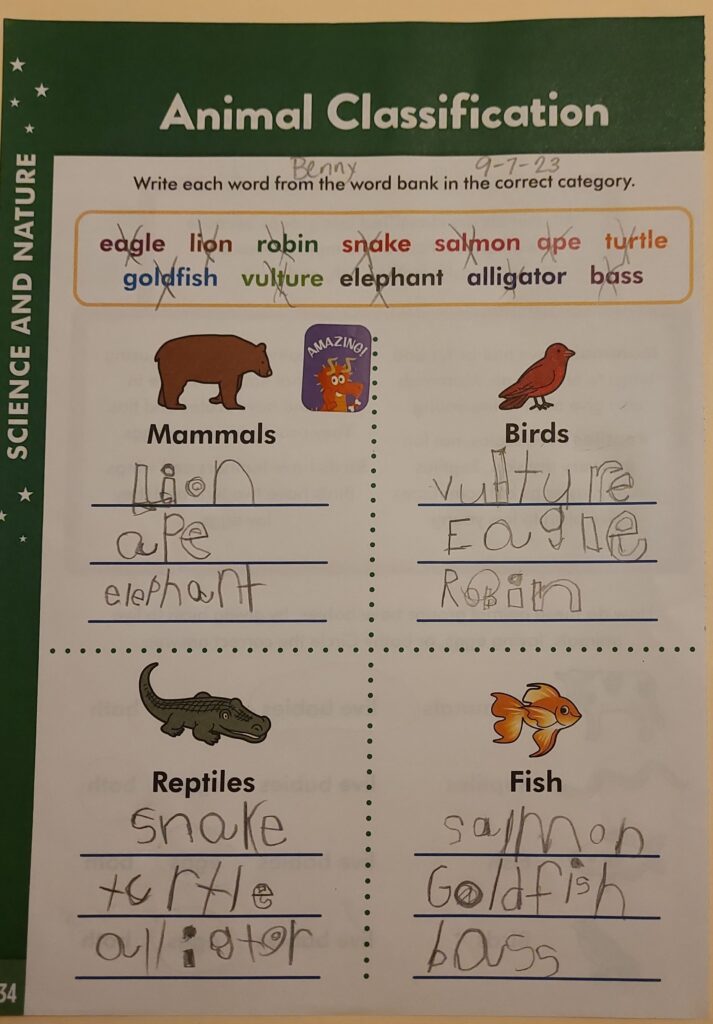 Animal Classification
Benny 9-7-23
Write each word from the word bank in the correct category.
eagle lion robin snake salmon ape turtle
goldfish vulture elephant alligator bass
AMAZING!
Mammals
Lion
ape
elephant
Birds
vulture
EaglE
RoBin
Reptiles
snake
turtle
alligator
Fish
salmon
Goldfish
bass
SCIENCE AND NATURE
34